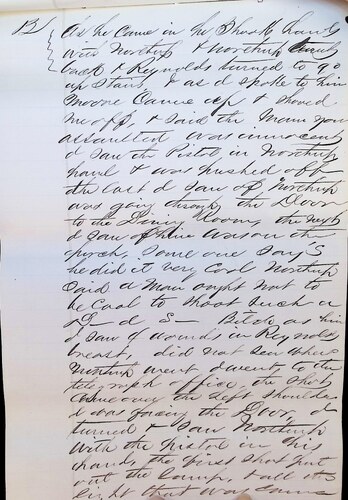 B
As he came in he Shook hands
with Northup & Northup
back & Reynolds turned to go
up Stairs & as I spoke to him
Moore Came up & shoved
me off & said the Man you
assaulted was innocent
I Saw the Pistol in Northup
hand & was pushed off
the last I saw of Northup
was going through the Door
to the Dining Room, the next
I Saw of him was on the
porch, Some one Say's
he did it very Cool Northup
Said a Man ought not to
be Cool to Shoot Such a
G– d S– Bitch as him
I Saw 4 wounds in Reynolds
breast, did not See where
Northup went I went to the
telegraph office, the Shot
Came over the left Shoulder
I was facing the Door, I
turned & Saw Northup
with the Pistol in his
hand, the first Shot put
out the Lamp, & all the
light that was